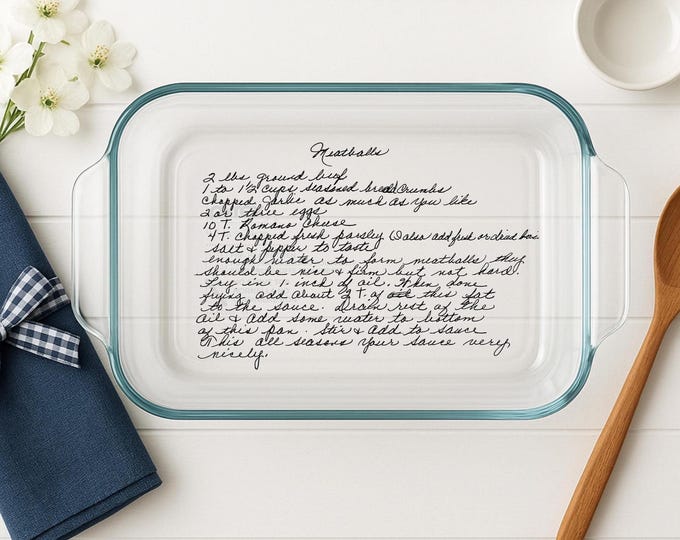 Meatballs
2 lbs ground beef
1 to 1 1/2 cups seasoned breadcrumbs
Chopped garlic as much as you like
2 or three eggs
10 T. Romano Cheese
4 T. chopped fresh parsley (I also add fresh or dried basil
salt & pepper to taste
enough water to form meatballs they
should be nice & firm but not hard.
Fry in 1 inch of oil. When done
frying add about 2 T. of oil this fat
to the sauce. Drain rest of the
oil & add some water to bottom
of this pan. Stir & add to sauce
This all seasons your sauce very
nicely.